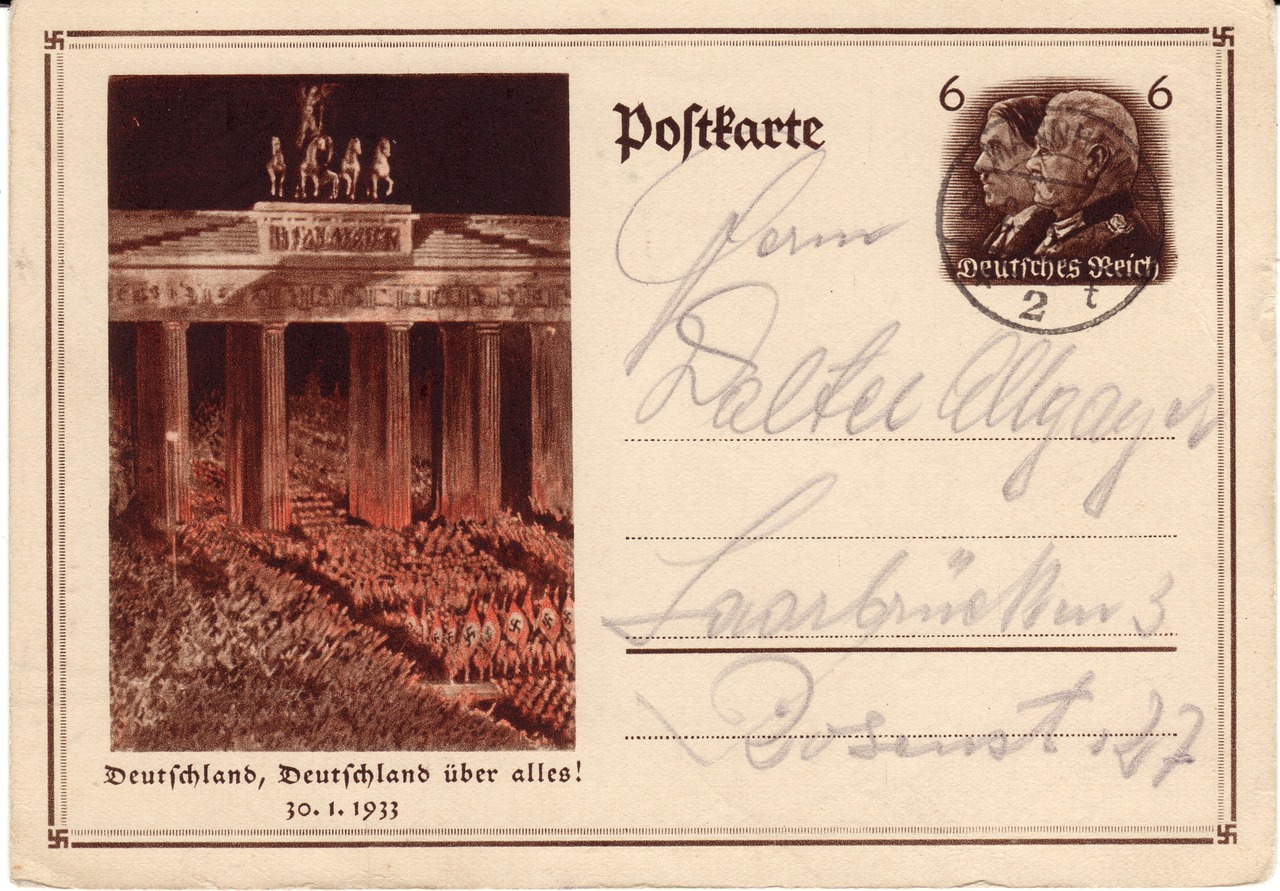 Postkarte
6 6
Deutsches Reich
2 t
Herrn
Walter Allgayer
Saarbrücken 3
Rosenst
Deutschland, Deutschland über alles!
30. 1. 1933